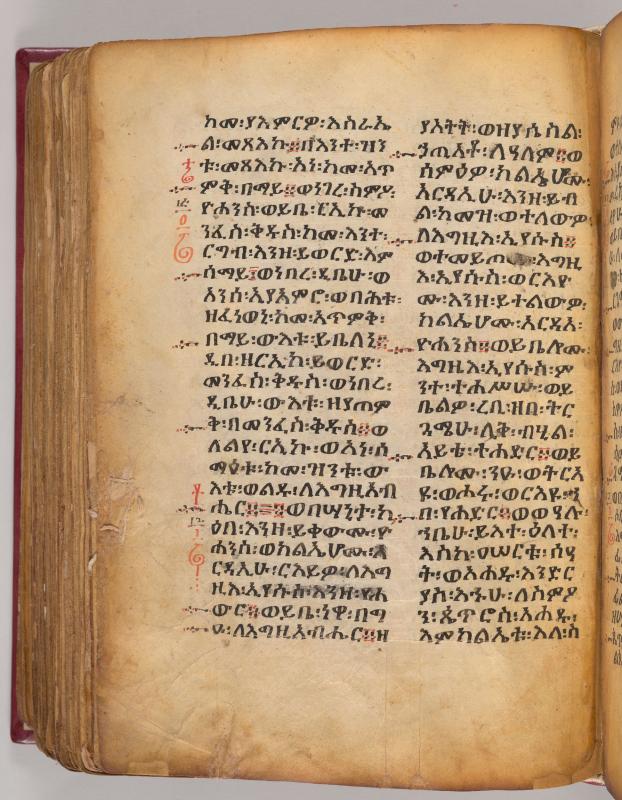 ከመ፡ያእምርዎ፡እስራኤ
ል፡መጻእኩ፡፡በእንተ፡ዝን
ቱ፡መጻእኩ፡አነ፡ከመ፡አጥ
ምቅ፡በማይ፡፡ወነገረ፡ስምዖ፡
ዮሐንስ፡ወይቤ፡ርኢኩ፡መ
ንፈስ፡ቅዱስ፡ከመ፡እንተ፡
ርግብ፡እንዘ፡ይወርድ፡እም
ሰማይ፡፡ወነበረ፡ዲቤሁ፡ወ
አንሰ፡ኢያአምሮ፡ወባሕቱ፡
ዘፈነወኒ፡ከመ፡አጥምቅ፡
በማይ፡ውእቱ፡ይቤለኒ፡፡
ዲበ፡ዘርኢከ፡ይወርድ፡
መንፈስ፡ቅዱስ፡ወነበረ፡
ዲቤሁ፡ውእቱ፡ዘያጠም
ቅ፡በመንፈስ፡ቅዱስ፡፡ወ
ለልየ፡ርኢኩ፡ወአነ፡ሰ
ማዕቱ፡ከመ፡ዝንቱ፡ው
እቱ፡ወልዱ፡ለእግዚአብ
ሔር፡፡ወበሣኒታ፡ካ
ዕበ፡እንዘ፡ይቀውሙ፡ዮ
ሐንስ፡ወክልኤሆሙ፡አ
ርዳኢሁ፡ርእይዎ፡ለእግ
ዚእ፡ኢየሱስ፡እንዘ፡የሐ
ውር፡፡ወይቤ፡ነዋ፡በግ
ዑ፡ለእግዚአብሔር፡፡ዘ
ያአትት፡ወዘያሴስል፡
ኀጢአተ፡ለዓለም፡፡ወ
ሰምዕዎ፡ክልኤሆሙ፡
አርዳኢሁ፡እንዘ፡ይብ
ል፡ከመዝ፡ወተለውዎ፡
ለእግዚእ፡ኢየሱስ፡፡
ወተመይጠ፡እግዚ
እ፡ኢየሱስ፡ወርእዮ
ሙ፡እንዘ፡ይተልውዎ፡
ክልኤሆሙ፡አርዳእ፡
ዮሐንስ፡፡ወይቤሎሙ፡
እግዚእ፡ኢየሱስ፡ም
ንተ፡ተሐሥሡ፡ወይ
ቤልዎ፡ረቢ፡ዘበ፡ትር
ጓሜሁ፡ሊቅ፡ብሂል፡
አይቴ፡ተሐድር፡፡ወይ
ቤሎሙ፡ንዑ፡ወትርአ
ዩ፡ወሖሩ፡ወርእዩ፡ኀ
በ፡የሐድር፡፡ወወዓሉ፡
ኀቤሁ፡ይእተ፡ዕለተ፡
እስከ፡ዐሠርቱ፡ሰዓ
ት፡ወአሐዱ፡እንድር
ያስ፡እኁሁ፡ለስምዖ
ን፡ጴጥሮስ፡አሐዱ፡
እምክልኤቱ፡እለ፡ስ